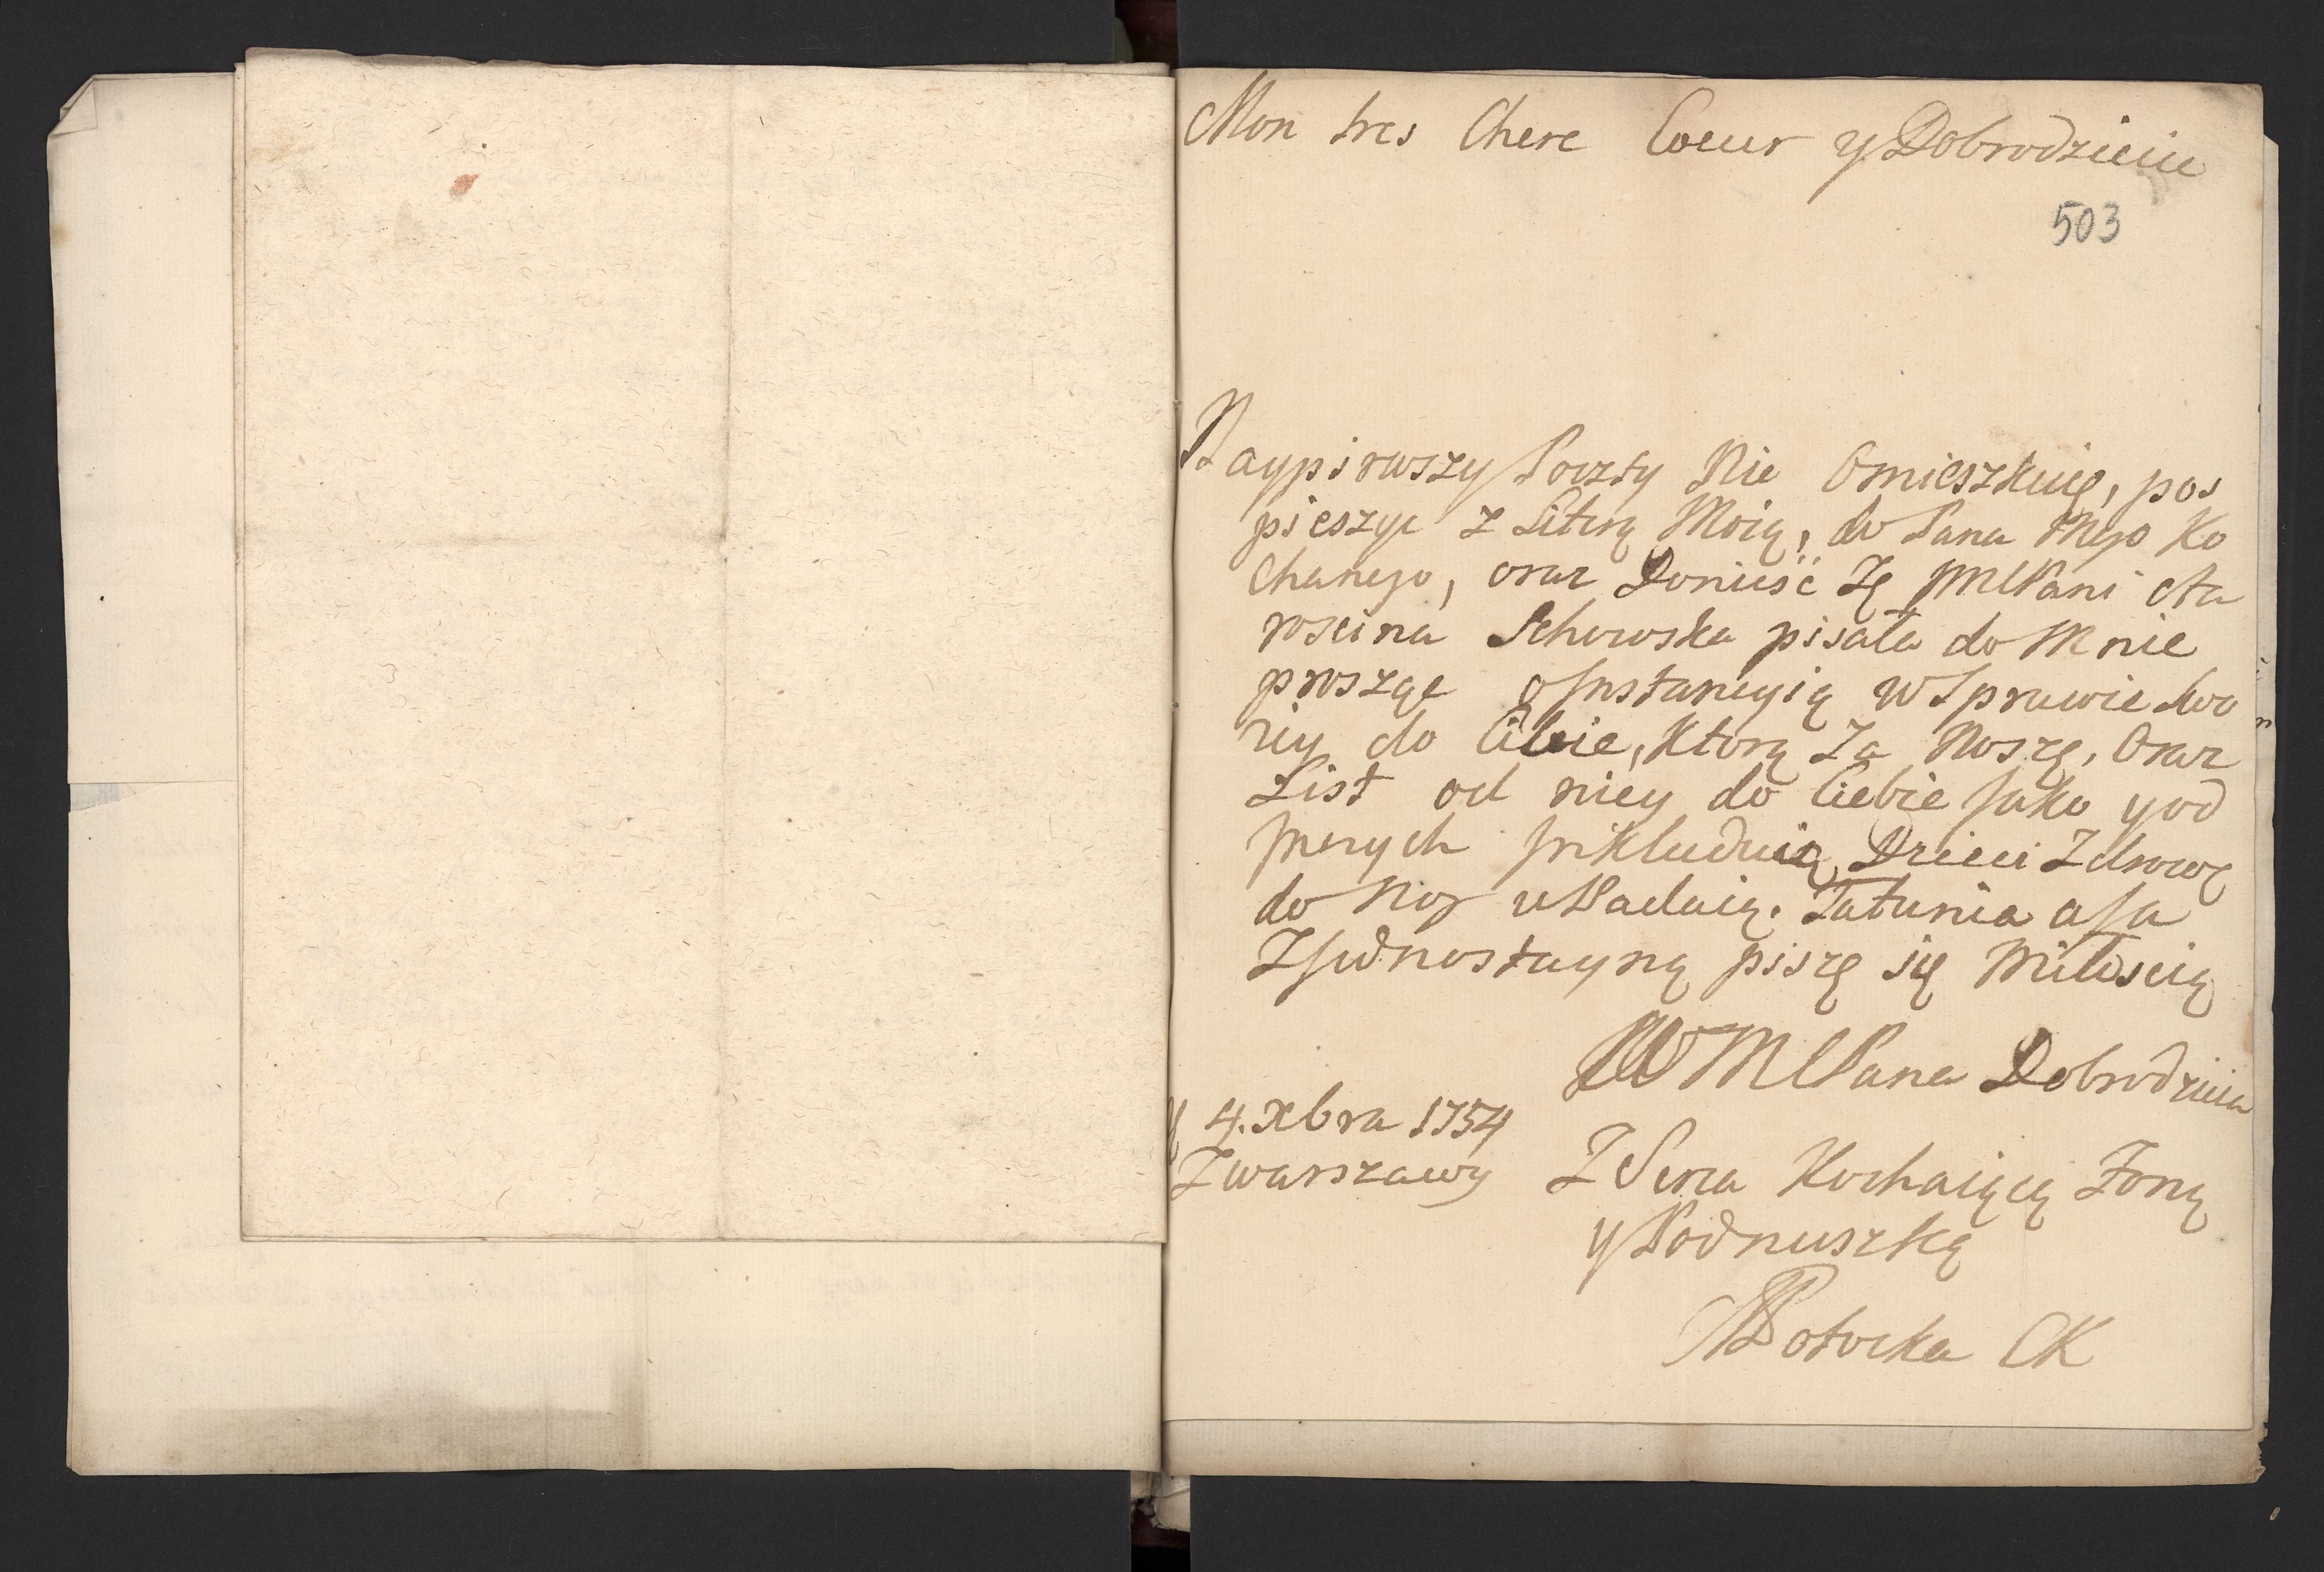 Mon tres Chere Coeur y Dobrodzieiu
503
Naypirwszy Poczty Nie Omieszkuię, pos
pieszyc z Literą Moią, do Pana Mego Ko
chanego, oraz Donieść Zę JMCPani sta
roscina pisała do Mnie
prosząc o Jnstancyią w Sprawie swo
iey do Ciebie, Ktorą Za Noszę, Oraz
List od niey do Ciebie Jako y od
Jnszych Dzieci Zdrowę
do Nog upadaią. Tatunia a Ja
Z Jednostayną piszę się Miłoscią
WMCPana Dobrodzieia
4. Xbra 1754
Z Warszawy
Z Serca Kochaiącą Żoną
y Podnuszką
Potocka CK